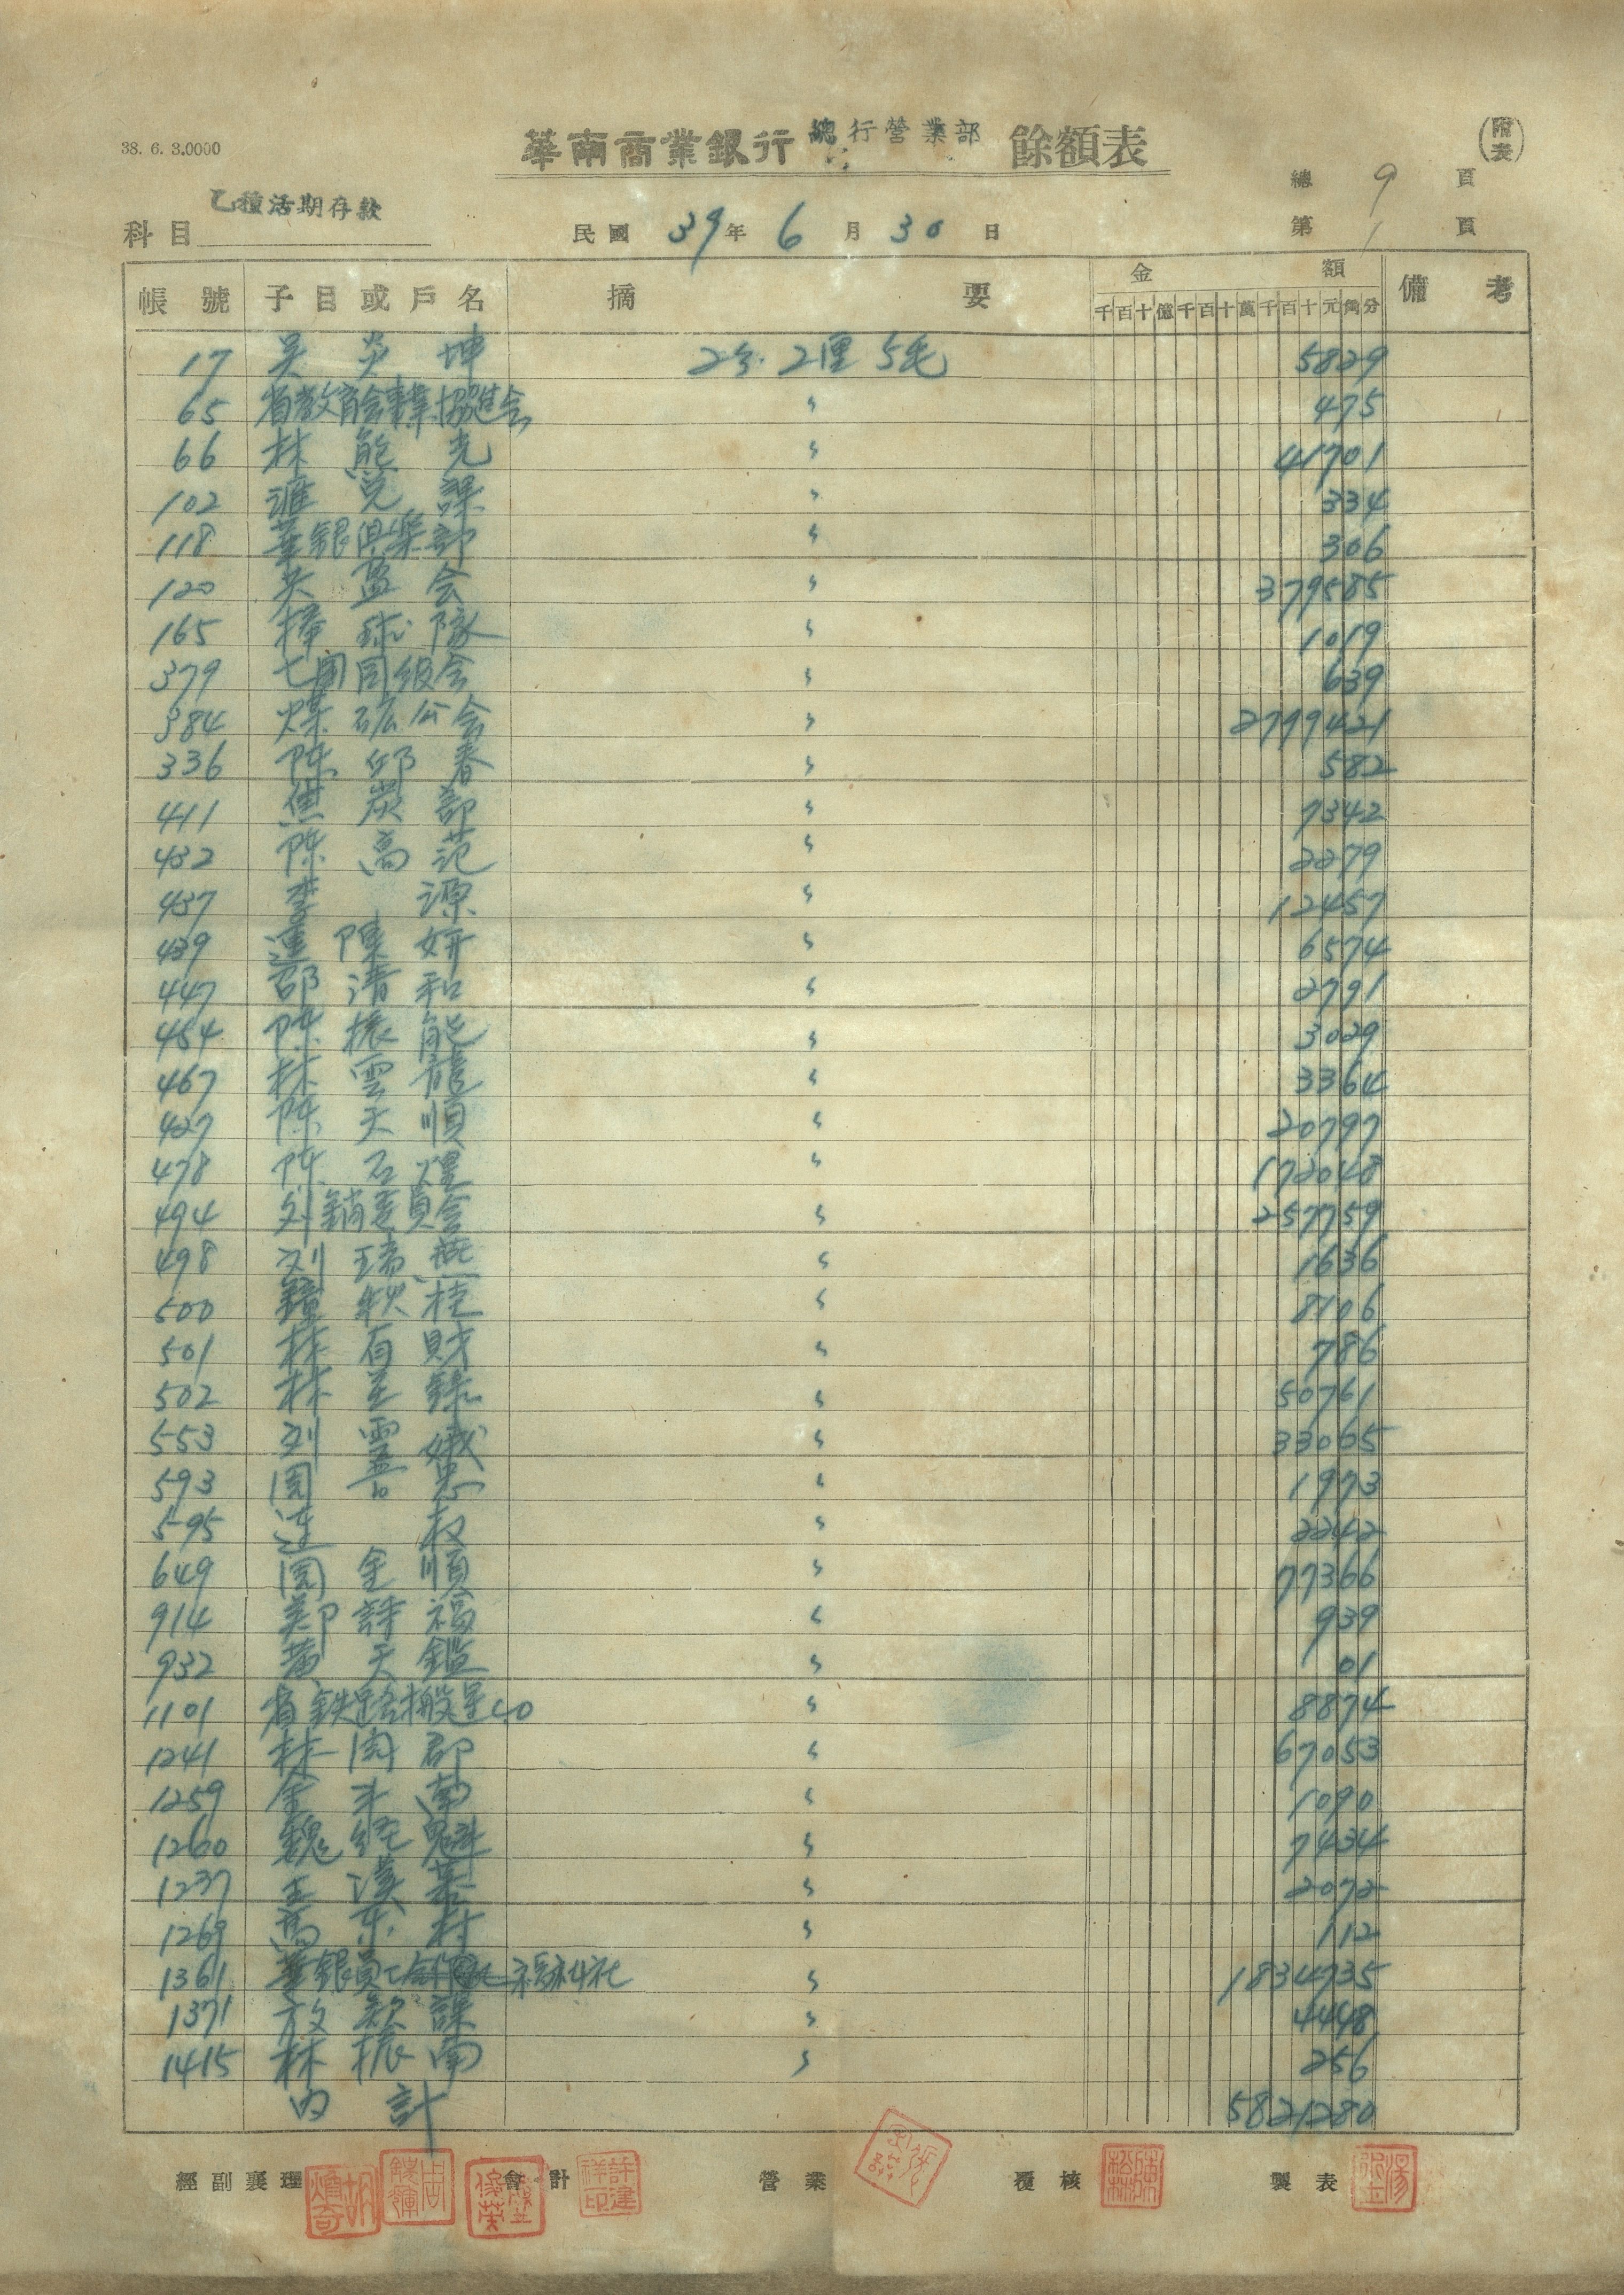 38. 6. 3.0000
華南商業銀行 總行營業部 餘額表
(附表)
總 9 頁
乙種活期存款
科目
民國 39 年 6 月 30 日
第 1 頁
帳號 子目或戶名 摘要 金額 備考
千百十億千百十萬千百十元角分
17 吴炎坤 2分.2厘5毛 5829
65 省教育会事業協進会 〃 475
66 林熊光 〃 41701
102 滙兌課 〃 334
118 華銀俱楽部 〃 306
120 共益会 〃 379585
165 棒球隊 〃 1019
379 七開同級会 〃 639
384 煤砿公会 〃 2799421
336 陈邱春 〃 582
411 焦炭部 〃 9342
432 陈高范 〃 2279
437 李源 〃 12457
439 連陳妍 〃 6574
447 邵清和 〃 2791
454 陈振能 〃 3029
467 林雲龍 〃 3364
427 陈天順 〃 20797
478 陈石煌 〃 172048
494 外銷委員会 〃 257759
498 刘瑞燕 〃 1636
500 鐘秋桂 〃 8106
501 林有財 〃 786
502 林呈錄 〃 50761
553 刘雲娥 〃 33065
593 周善忠 〃 1973
595 连枝 〃 2242
649 周金順 〃 77366
914 鄭詳福 〃 939
932 黃天鑑 〃 01
1101 省鉄路搬運CO 〃 8874
1241 林陶郡 〃 67053
1259 金斗南 〃 1090
1260 魏經魁 〃 7434
1237 王漢 〃 2072
1269 馬东村 〃 112
1361 華銀員工 福利社 〃 1834735
1371 放欵課 〃 4448
1415 林振南 〃 256
内計 5821280
經副襄理 會計 營業 覆核 製表
許建祥印